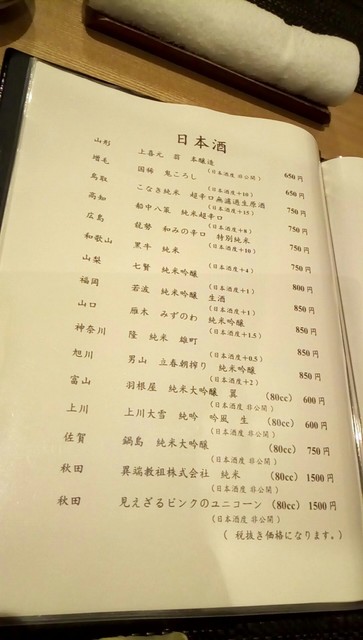 日本酒
山形 上喜元 翁 本醸造 650円
(日本酒度 非公開)
増毛 国稀 鬼ころし 650円
(日本酒度+10)
鳥取 こなき純米 超辛口無濾過生原酒 750円
(日本酒度+15)
高知 船中八策 純米超辛口 750円
(日本酒度+8)
広島 龍勢 和みの辛口 特別純米 750円
(日本酒度+10)
和歌山 黒牛 純米 750円
(日本酒度+4)
山梨 七賢 純米吟醸 生酒 800円
(日本酒度+1)
福岡 若波 純米吟醸 850円
(日本酒度+1)
山口 雁木 みずのわ 純米吟醸 850円
(日本酒度+1.5)
神奈川 隆 純米 雄町 850円
(日本酒度+0.5)
旭川 男山 立春朝搾り 純米吟醸 850円
(日本酒度+2)
富山 羽根屋 純米大吟醸 翼 (80cc) 600円
(日本酒度 非公開)
上川 上川大雪 純吟 吟風 生 (80cc) 600円
(日本酒度 非公開)
佐賀 鍋島 純米大吟醸 (80cc) 750円
(日本酒度 非公開)
秋田 異端教祖株式会社 純米 (80cc) 1500円
(日本酒度 非公開)
秋田 見えざるピンクのユニコーン (80cc) 1500円
(日本酒度 非公開)
(税抜き価格になります。)